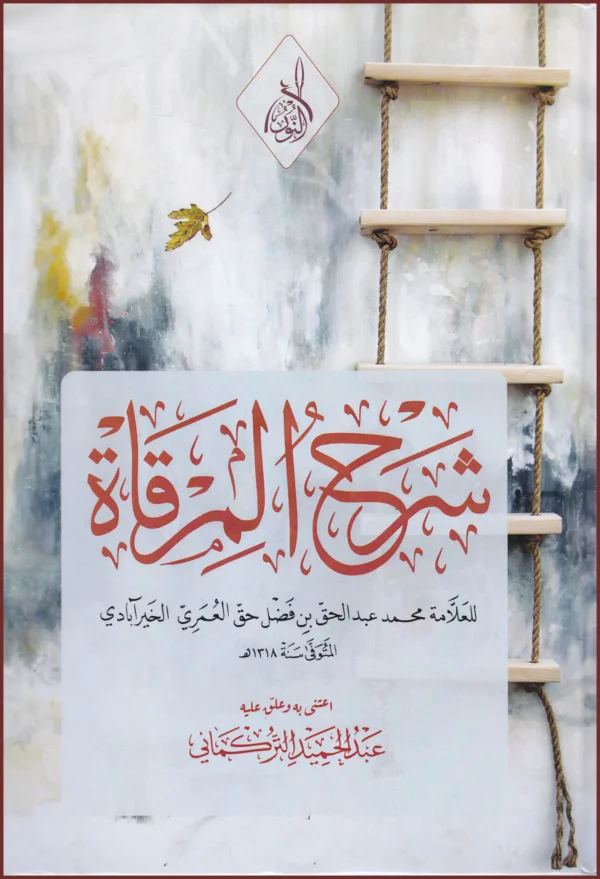 النُّور
شَرحُ المِرقَاة
للعَلَّامة محمد عبد الحقّ بِن فَضْل حَقّ العُمَرِيّ الخَيرآبادي
المتَوَفَّى سَنَةَ ١٣١٨هـ
اعتنى به وعلق عليه
عَبْدُ الحَمِيْد التُّركمَاني